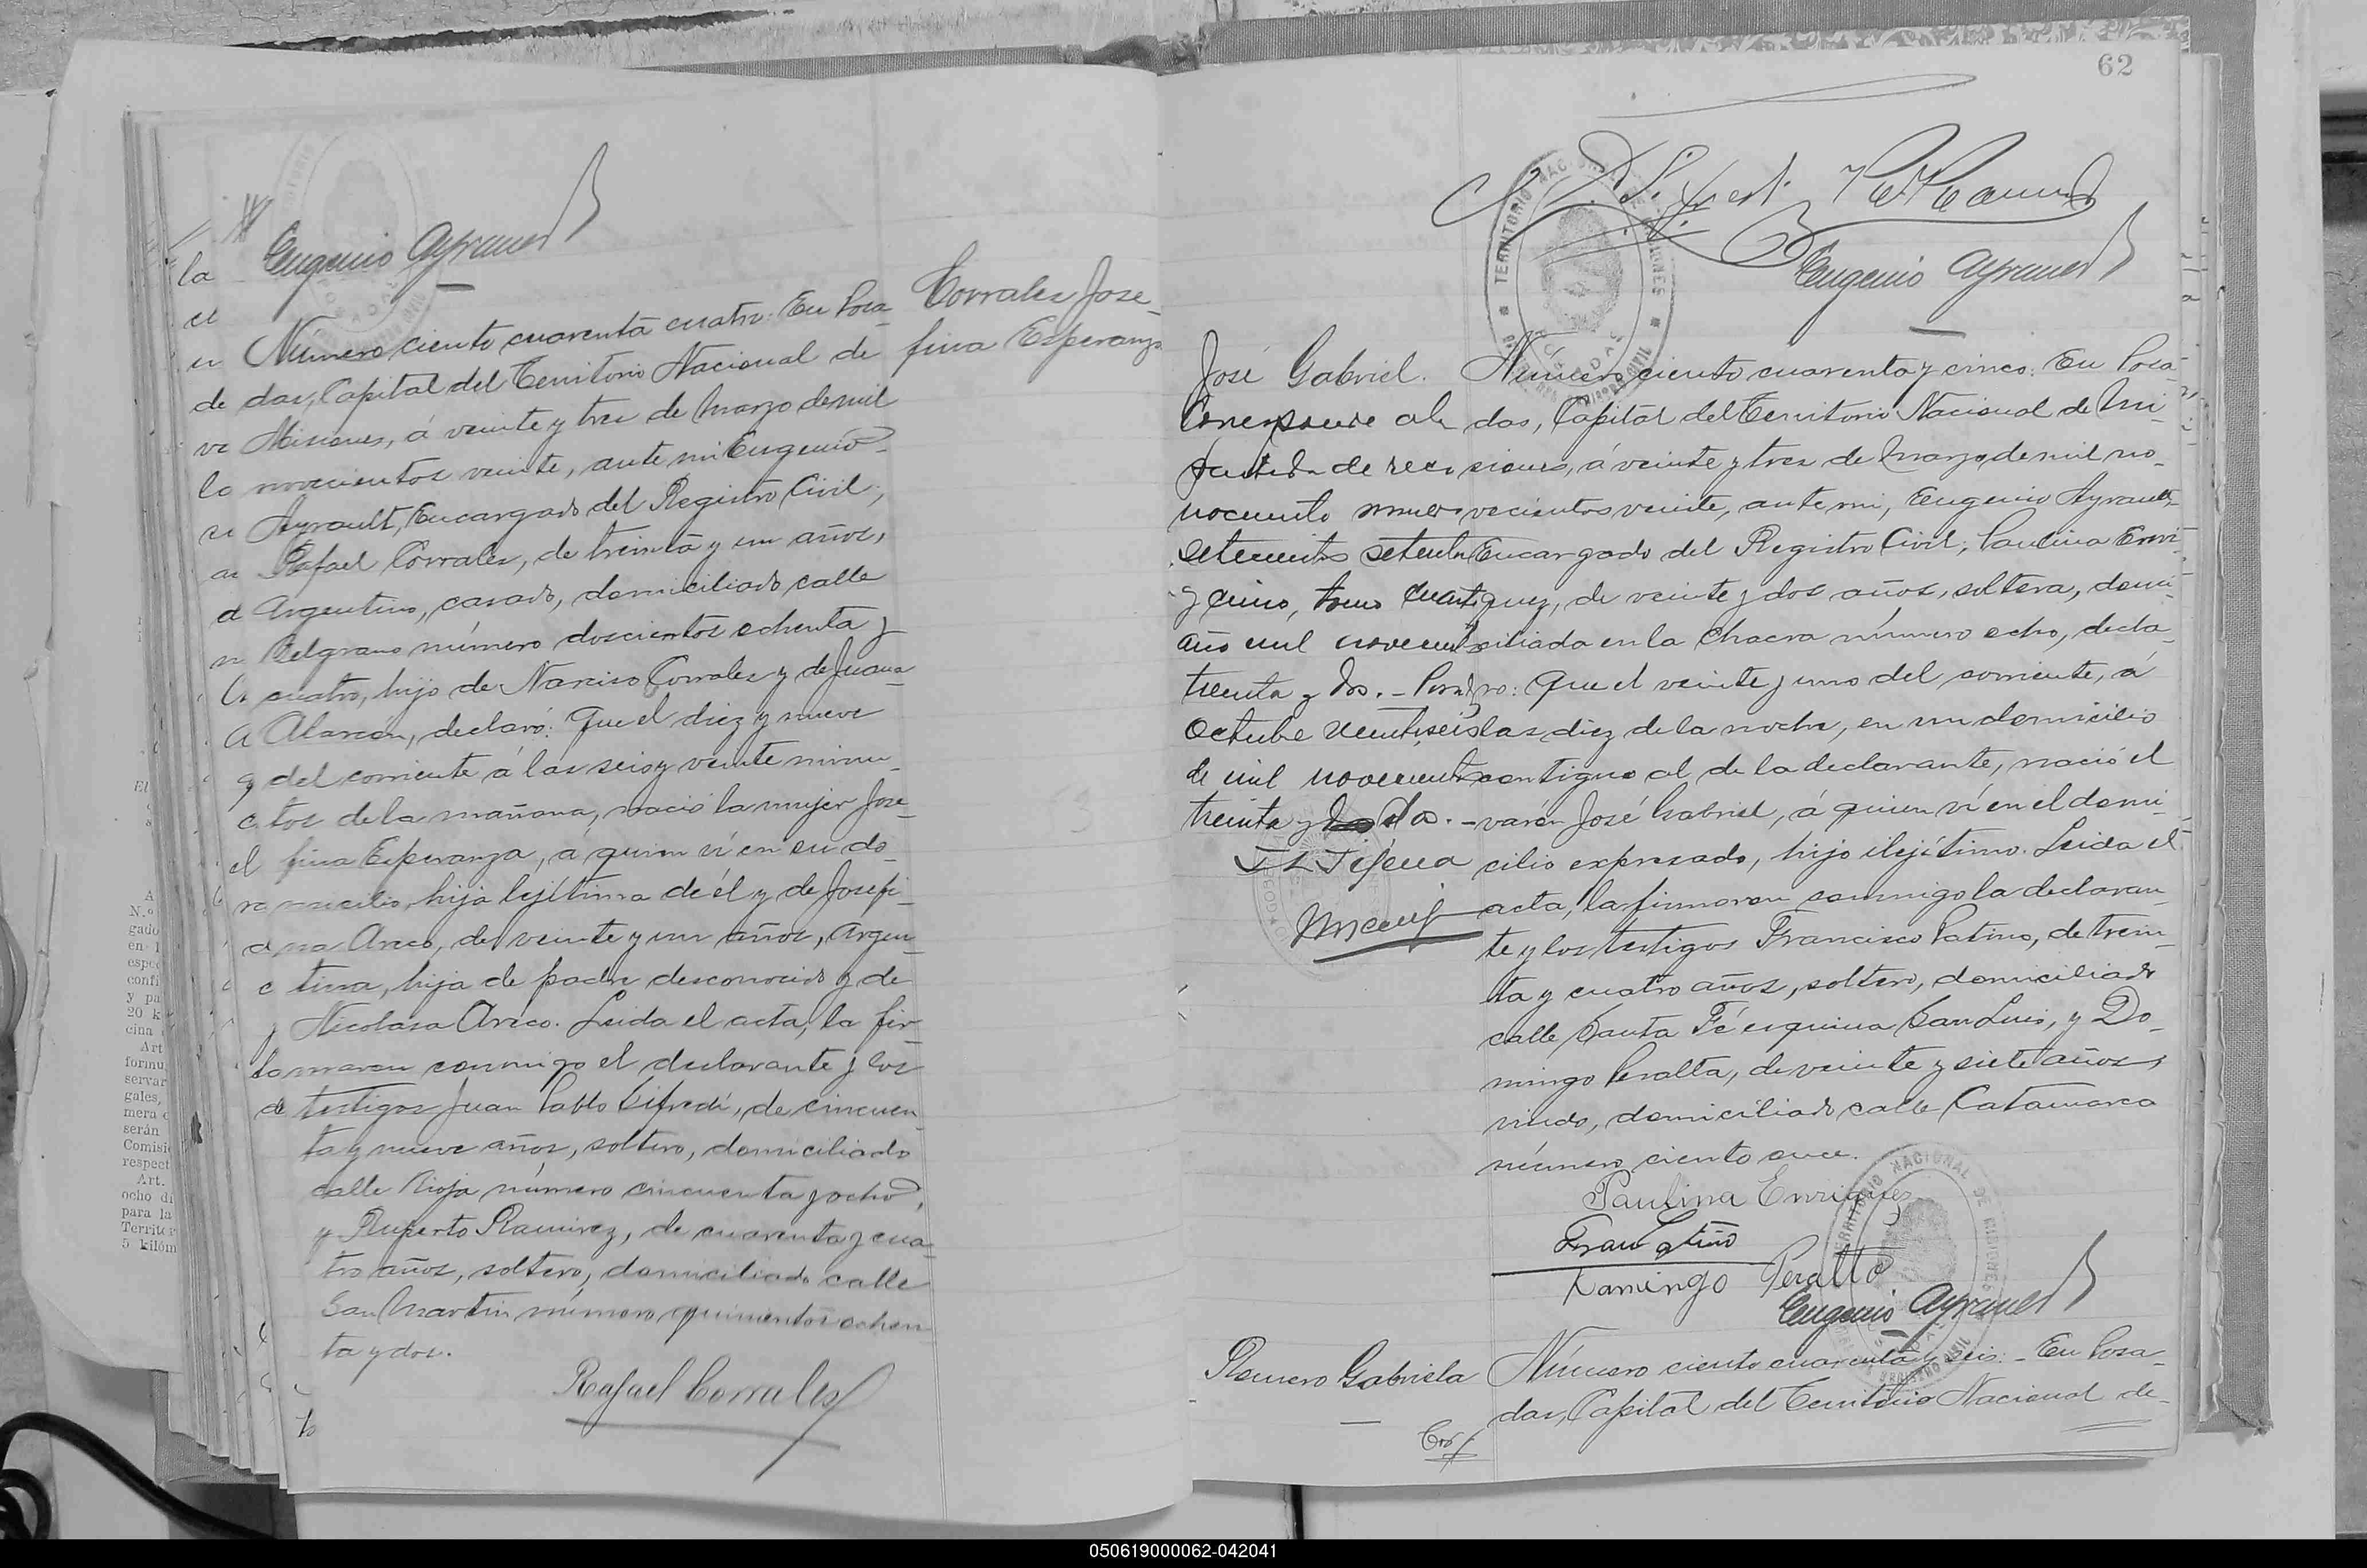 Eugenio Ayrault
Número ciento cuarenta cuatro: En Posa-
das, Capital del Territorio Nacional de
Misiones, á veinte y tres de Marzo de mil
novecientos veinte, ante mi Eugenio
Ayrault, Encargado del Registro Civil;
Rafael Corrales, de treinta y un años,
Argentino, casado, domiciliado calle
Belgrano número doscientos ochenta y
cuatro, hijo de Narciso Corrales y de Juana
Alarcón, declaró: Que el diez y nueve
del corriente á las seis y veinte minu-
tos de la mañana, nació la mujer Jose-
fina Esperanza, á quien ví en su do-
micilio, hija lejítima de él y de Josefi-
na Areco, de veinte y un años, Argen-
tina, hija de padre desconocido y de
Nicolasa Areco. Leida el acta, la fir-
maron conmigo el declarante y los
testigos Juan Pablo Sifredi, de cincuen-
ta y nueve años, soltero, domiciliado
calle Rioja número cincuenta y ocho,
y Ruperto Ramirez, de cuarenta y cua-
tro años, soltero, domiciliado calle
San Martin número quinientos ochen-
ta y dos.
Rafael Corrales
Corrales Jose-
fina Esperanza
62
Eugenio Ayrault
José Gabriel.
Corresponde a la
partida de reco
nocimiento numero
setecientos setenta
y cinco, tomo
año mil novecientos
treinta y dos. - Posadas
Octubre veintiseis
de mil novecientos
treinta y dos. -
Número ciento cuarenta y cinco: En Posa-
das, Capital del Territorio Nacional de Mi-
siones, á veinte y tres de Marzo de mil no-
vecientos veinte, ante mi, Eugenio Ayrault,
Encargado del Registro Civil; Paulina Enri-
quez, de veinte y dos años, soltera, domi-
ciliada en la Chacra número ocho, decla-
ro: Que el veinte y uno del corriente, á
las diez de la noche, en un domicilio
contiguo al de la declarante, nació el
varón José Gabriel, á quien ví en el domi-
cilio expresado, hijo ilejítimo. Leida el
acta, la firmaron conmigo la declaran-
te y los testigos Francisco Patino, de trein-
ta y cuatro años, soltero, domiciliado
calle Santa Fé esquina San Luis, y Do-
mingo Peralta, de veinte y siete años,
viudo, domiciliado calle Catamarca
número ciento once.
Paulina Enriquez
Domingo Peralta
Eugenio Ayrault
Romero Gabriela
Número ciento cuarenta y seis: - En Posa-
das, Capital del Territorio Nacional de
050619000062-042041